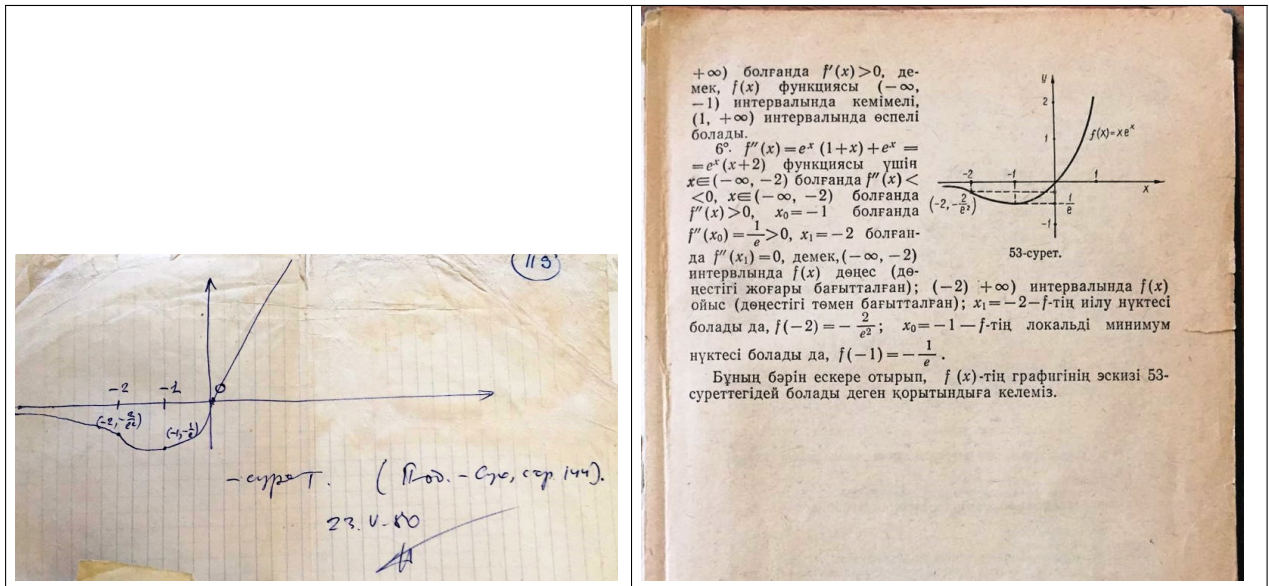 113
-2 -1 0
(-2,-2/e²) (-1,-1/e)
-сурет. (Под.-Сух, стр 144).
23.V-80
+∞) болғанда f′(x)>0, де-
мек, f(x) функциясы (−∞,
−1) интервалында кемімелі,
(1, +∞) интервалында өспелі
болады.
6°. f″(x)=eˣ (1+x)+eˣ =
=eˣ(x+2) функциясы үшін
x∈(−∞, −2) болғанда f″(x)<
<0, x∈(−∞, −2) болғанда
f″(x)>0, x₀=−1 болғанда
f″(x₀)=1/e>0, x₁=−2 болған-
да f″(x₁)=0, демек,(−∞, −2)
интервлында f(x) дөңес (дө-
ңестігі жоғары бағытталған); (−2) +∞) интервалында f(x)
ойыс (дөңестігі төмен бағытталған); x₁=−2−f-тің иілу нүктесі
болады да, f(−2)=−2/e²; x₀=−1−f-тің локальді минимум
нүктесі болады да, f(−1)=−1/e.
Бұның бәрін ескере отырып, f (x)-тің графигінің эскизі 53-
суреттегідей болады деген қорытындыға келеміз.
y
2
1
f(x)=xeˣ
-2 -1 1
x
(-2,-2/e²) -1/e
-1
53-сурет.